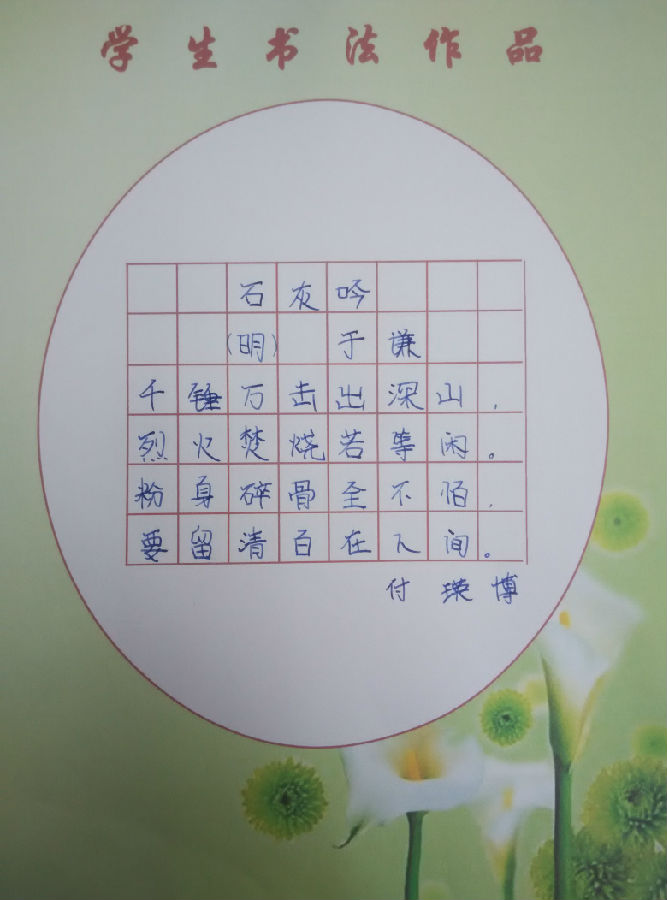 学生书法作品
石灰吟
(明) 于谦
千锤万击出深山，
烈火焚烧若等闲。
粉身碎骨全不怕，
要留清白在人间。
付瑛博